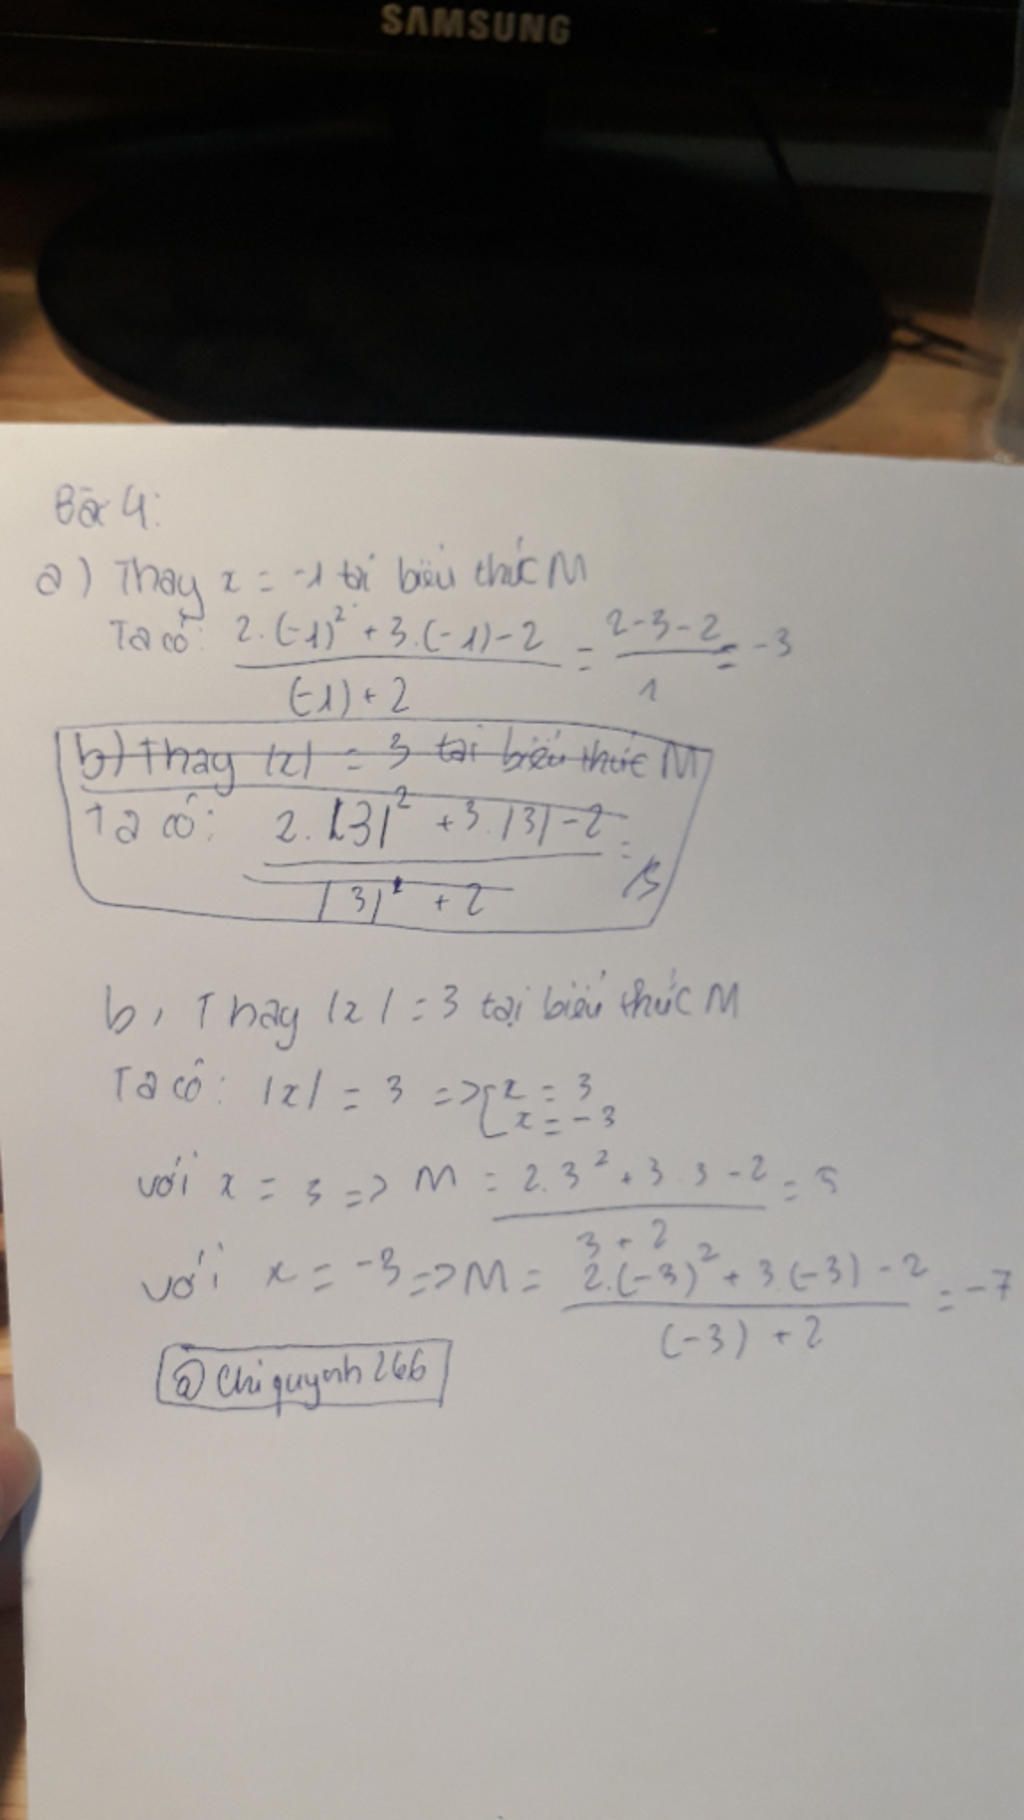 SAMSUNG
Bài 4:
a) Thay x = -1 tại biểu thức M
Ta có: \frac{2.(-1)^2 + 3.(-1) - 2}{(-1) + 2} = \frac{2-3-2}{1} = -3
b) Thay |x| = 3 tại biểu thức M
Ta có: \frac{2.|3|^2 + 3.|3| - 2}{|3| + 2} = 5
b, Thay |x| = 3 tại biểu thức M
Ta có: |x| = 3 => [x = 3
x = -3
với x = 3 => M = \frac{2.3^2 + 3.3 - 2}{3 + 2} = 5
với x = -3 => M = \frac{2.(-3)^2 + 3(-3) - 2}{(-3) + 2} = -7
@ Chiquynh266